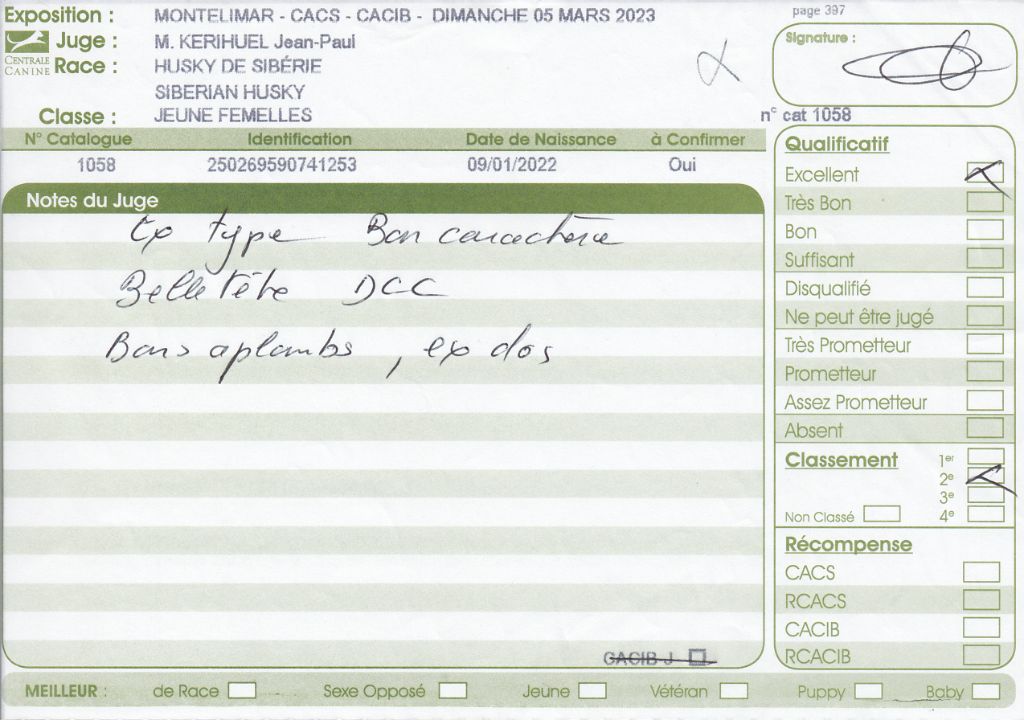 Exposition : MONTELIMAR - CACS - CACIB - DIMANCHE 05 MARS 2023
page 397
CENTRALE CANINE
Juge : M. KERIHUEL Jean-Paul
Signature :
Race : HUSKY DE SIBÉRIE
SIBERIAN HUSKY
Classe : JEUNE FEMELLES
n° cat 1058
N° Catalogue Identification Date de Naissance à Confirmer
1058 250269590741253 09/01/2022 Oui
Notes du Juge
Ex type Bon caractère
Belle tête DCC
Bons aplombs, ex dos
CACIB J
Qualificatif
Excellent
Très Bon
Bon
Suffisant
Disqualifié
Ne peut être jugé
Très Prometteur
Prometteur
Assez Prometteur
Absent
Classement 1er
2e
3e
Non Classé 4e
Récompense
CACS
RCACS
CACIB
RCACIB
MEILLEUR : de Race Sexe Opposé Jeune Vétéran Puppy Baby